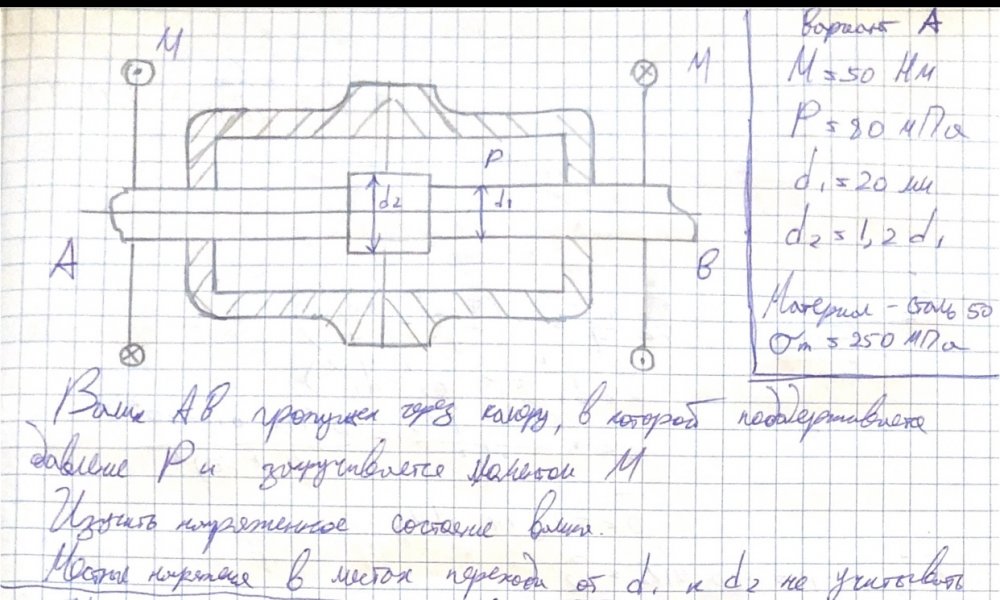 Вариант А
M = 50 Нм
P = 80 мПа
d₁ = 20 мм
d₂ = 1,2 d₁
Материал - сталь 50
σт = 250 МПа
M
M
P
d₂
d₁
А
В
Валик АВ пропущен через камеру, в которой поддерживается
давление P и закручивается моментом M
Изучить напряженное состояние валика.
Местные напряжения в местах перехода от d₁ к d₂ не учитывать